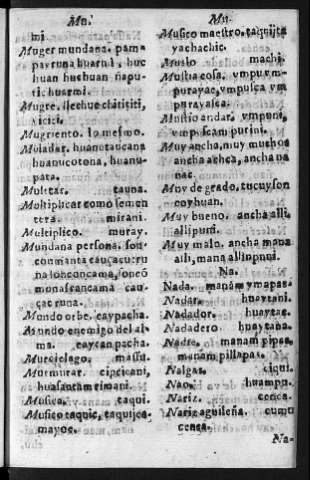 Mu.
mi
Muger mundana. pam-
payruna huarmi, huc
huan huchuan ñapu-
ric huarmi.
Mugre. llechue chătiṣti,
vicici.
Mugriento. lo mesmo.
Muladar. huanutaucana
huanucotona, huanu-
pata.
Muletas. tauna.
Multiplicar como semen
tera. mirani.
Multiplico. muray.
Mundana persona. son-
conmanta cauçacuc ru
na
monascancama cau
çac runa.
Mundo orbe. caypacha.
Mundo enemigo del al-
ma. caycan pacha.
Murcielago. massu.
Mormurar. cipcicani,
huasacta rimani.
Musica. taqui.
Musico taquic, taquijca-
mayoc.
Mu.
Musico maestro. taquijcta
yachachic.
Muslo machi.
Mustia cosa. vmpu vm-
purayac, vmpuica vm
purayasca.
Mustio andar. vmpuni,
vmpiscam purini.
Muy ancha, muy mucho
ancha achca, ancha ya
nac.
Muy de grado. tucuy son
coyhuan.
Muy bueno. ancha alli,
allipuni.
Muy malo. ancha mana
alli, mana allinpuni.
Na.
Nada. manam ymapas.
Nadar. huaytani.
Nadador. huaytac.
Nadadero huaytana.
Nadie. manam pipas,
manam pillapas.
Nalgas. ciqui.
Nao. huampu.
Nariz. cenca.
Nariz aguileña. cumu
cenca.
Na-